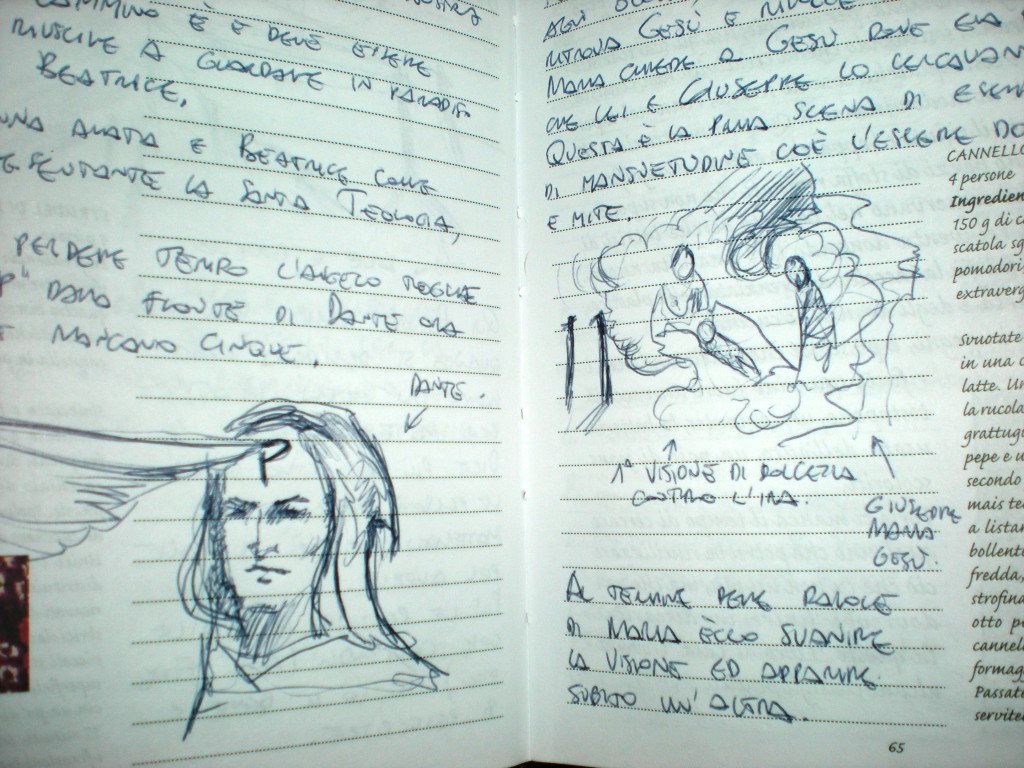 CAMMINO È E DEVE ESSERE
RIUSCIRE A GUARDARE IN PARADISO
BEATRICE,
UNA ALATA E BEATRICE COME
LA SANTA TEOLOGIA,
PERDERE TEMPO L'ANGELO TOGLIE
P" DALLA FRONTE DI DANTE ORA
MANCANO CINQUE.
DANTE.
P
RITROVA GESÙ E
MARIA CHIEDE A GESÙ DOVE ERA
CHE LEI E GIUSEPPE LO CERCAVANO
QUESTA È LA PRIMA SCENA DI
DI MANSUETUDINE CIOÈ L'ESSERE
E MITE.
1ª VISIONE DI DOLCEZZA
CONTRO L'IRA.
GIUSEPPE
MARIA
GESÙ.
AL TERMINE DELLE PAROLE
DI MARIA ECCO SVANIRE
LA VISIONE ED APPARIRE
SUBITO UN'ALTRA.
65
CANNELLO
4 persone
Ingredien
150 g di c
scatola sg
pomodori
extraverg
Svuotate
in una c
latte. Un
la rucola
grattug
pepe e u
secondo
mais te
a listar
bollent
fredda,
strofina
otto p
cannel
formag
Passate
servite